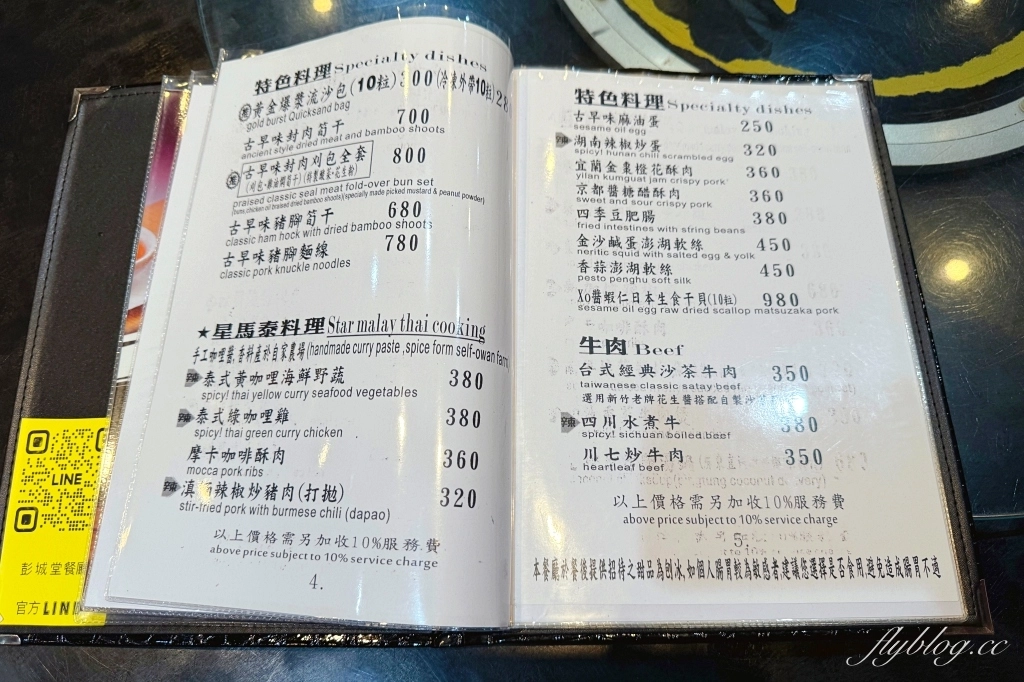 特色料理 Specialty dishes
黃金爆漿流沙包(10粒)300(冷凍外帶10粒)28
gold burst Quicksand bag
古早味封肉荀干 700
ancient style dried meat and bamboo shoots
古早味封肉刈包全套 800
praised classic seal meat fold-over bun set
古早味豬腳荀干 680
classic ham hock with dried bamboo shoots
古早味豬腳麵線 780
classic pork knuckle noodles
★星馬泰料理 Star malay thai cooking
手工咖哩醬,香料產於自家農場(handmade curry paste ,spice form self-owan farm
辣 泰式黃咖哩海鮮野蔬 380
spicy! thai yellow curry seafood vegetables
辣 泰式綠咖哩雞 380
spicy! thai green curry chicken
摩卡咖啡酥肉 360
mocca pork ribs
辣 滇 辣椒炒豬肉(打拋) 320
stir-fried pork with burmese chili (dapao)
以上價格需另加收10%服務費
above price subject to 10% service charge
4.
特色料理 Specialty dishes
古早味麻油蛋 250
sesame oil egg
辣 湖南辣椒炒蛋 320
spicy! hunan chili scrambled egg
宜蘭金棗橙花酥肉 360
yilan kumguat jam crispy pork
京都醬糖醋酥肉 360
sweet and sour crispy pork
四季豆肥腸 380
fried intestines with string beans
金沙鹹蛋澎湖軟絲 450
neritic squid with salted egg & yolk
香蒜澎湖軟絲 450
pesto penghu soft silk
Xo醬蝦仁日本生食干貝(10粒) 980
sesame oil egg raw dried scallop matsuzaka pork
牛肉 Beef
台式經典沙茶牛肉 350
taiwanese classic satay beef
選用新竹老牌花生醬搭配自製沙茶
辣 四川水煮牛 380
spicy! sichuan boiled beef
川七炒牛肉 350
heartleaf beef
以上價格需另加收10%服務費
above price subject to 10% service charge
5.
本餐廳於餐後提供招待之甜品為刨冰,如個人腸胃較為敏感者,建議您選擇是否食用,避免造成腸胃不適
LINE
彭城堂餐廳
官方LINE
flyblog.cc